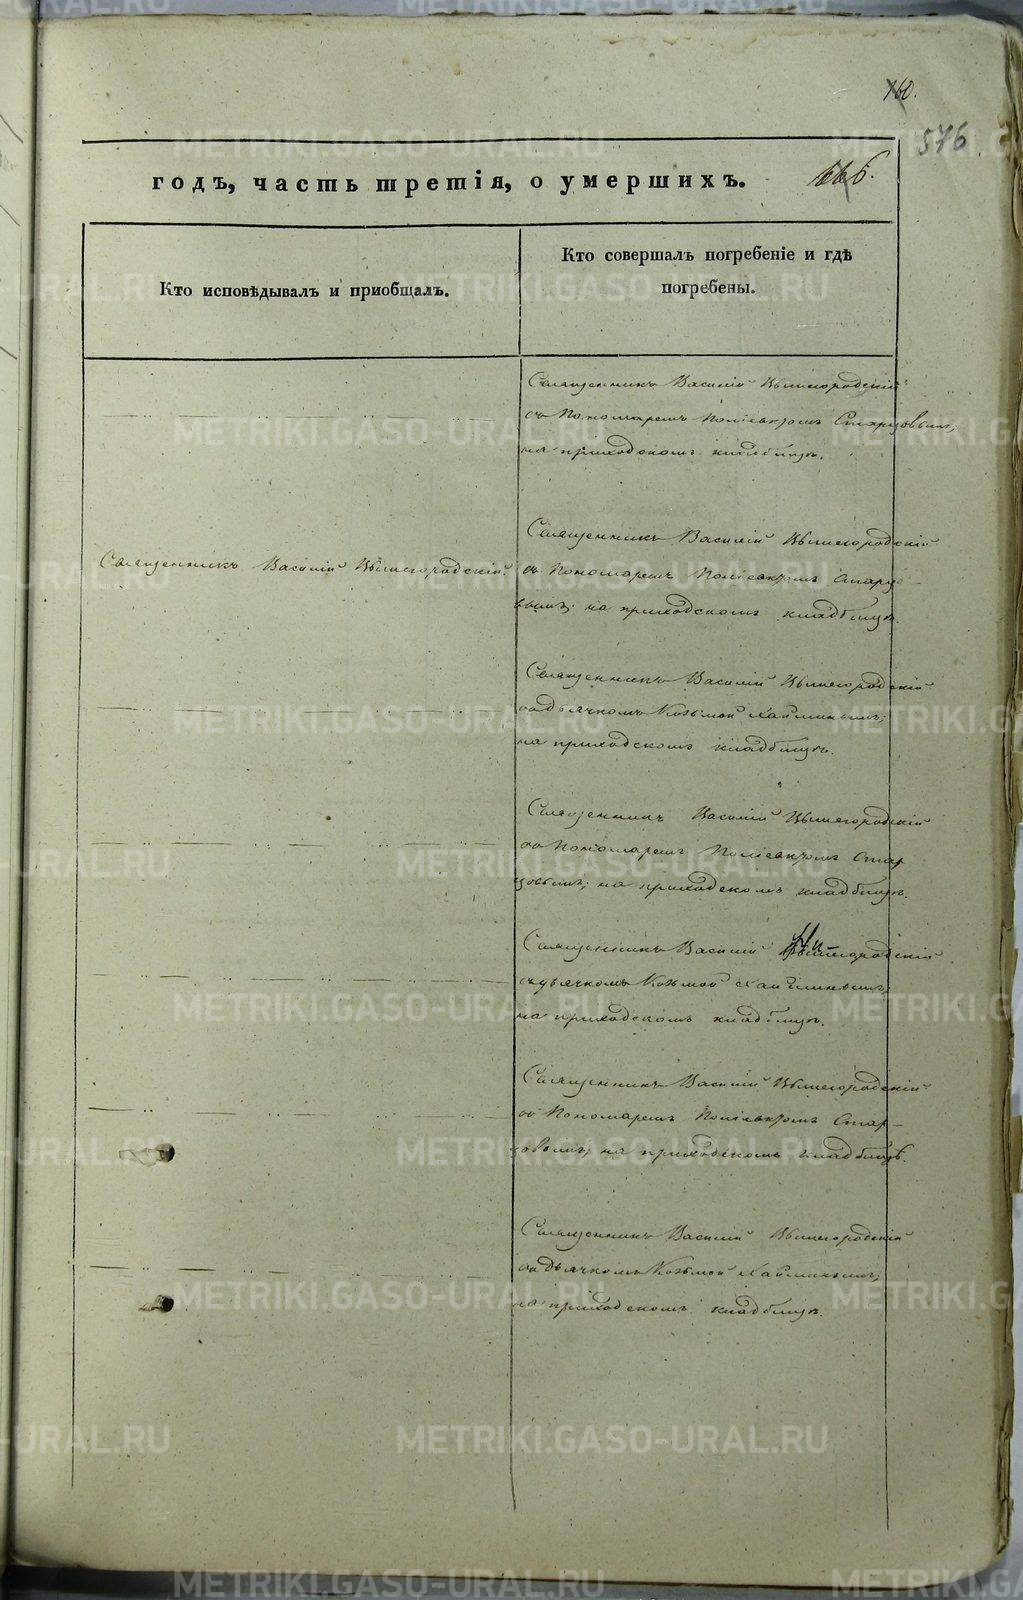 160.
576
годъ, часть третія, о умершихъ.
666.
Кто исповѣдывалъ и приобщалъ.
Кто совершалъ погребеніе и гдѣ
погребены.
Священникъ Василій Вышегородскій
съ Пономаремъ Поліевктомъ Старцовымъ,
на приходскомъ кладбищѣ.
Священникъ Василій Вышегородскій.
Священникъ Василій Вышегородскій
съ Пономаремъ Поліевктомъ Старцо-
вымъ; на приходскомъ кладбищѣ.
Священникъ Василій Вышегородскій
съ дьячкомъ Козьмой
на приходскомъ кладбищѣ.
Священникъ Василій Вышегородскій
съ Пономаремъ Поліевктомъ Стар
цовымъ; на приходскомъ кладбищѣ.
Священникъ Василій Вышегородскій
съ дьячкомъ Козьмой
на приходскомъ кладбищѣ.
Священникъ Василій Вышегородскій
съ Пономаремъ Поліевктомъ Стар-
цовымъ; на приходскомъ кладбищѣ.
Священникъ Василій Вышегородскій
съ дьячкомъ Козьмой
на приходскомъ кладбищѣ.
METRIKI.GASO-URAL.RU